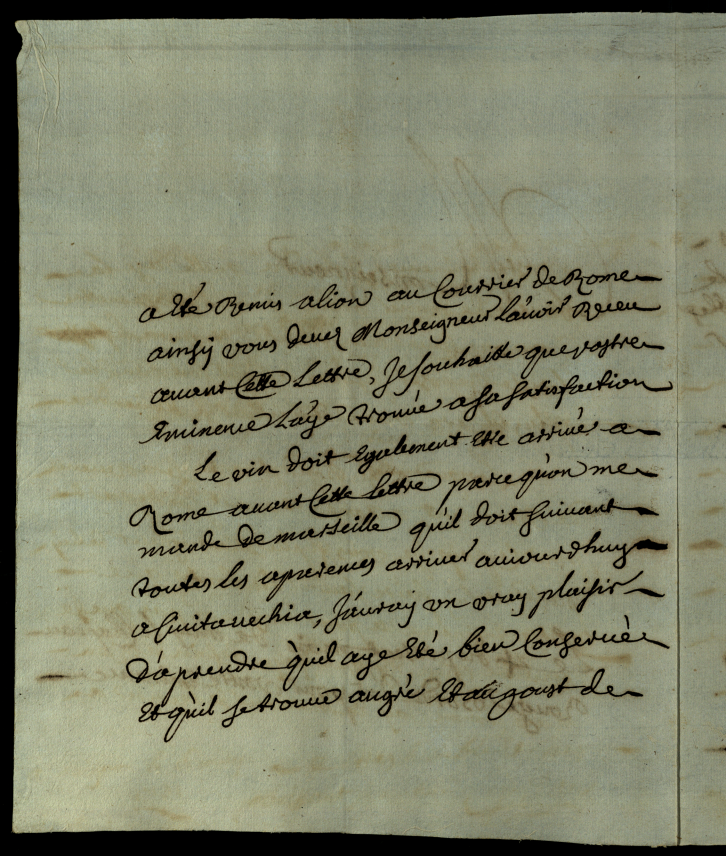 a Eté Remis alion au Courrier de Rome
ainsy vous deuez Monseigneur lauoir Receu
auant Cette Lettre, Je souhaitte que vostre
Eminence L'aye trouué a sa satisfaction
Le vin doit Egalement Etre arriué a
Rome auant Cette lettre parcequ'on me
mande de marseille qu'il doit suiuant
toutes les aparences arriuer aujourdhuy
a Ciuitauechia, J'auray vn vray plaisir
d'aprendre qu'il aye Eté bien Conserué
Et qu'il se trouue augré Et au goust de